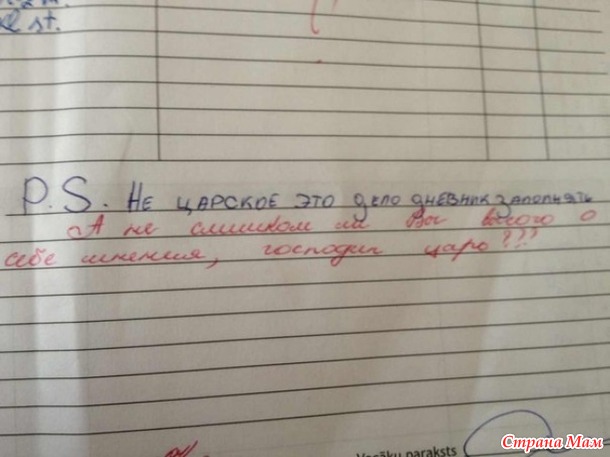 st.
P.S. НЕ ЦАРСКОЕ ЭТО ДЕЛО ДНЕВНИК ЗАПОЛНЯТЬ
А не слишком ли Вы высого о
себе мнения, господин царь???
Vecāku paraksts
Страна Мам